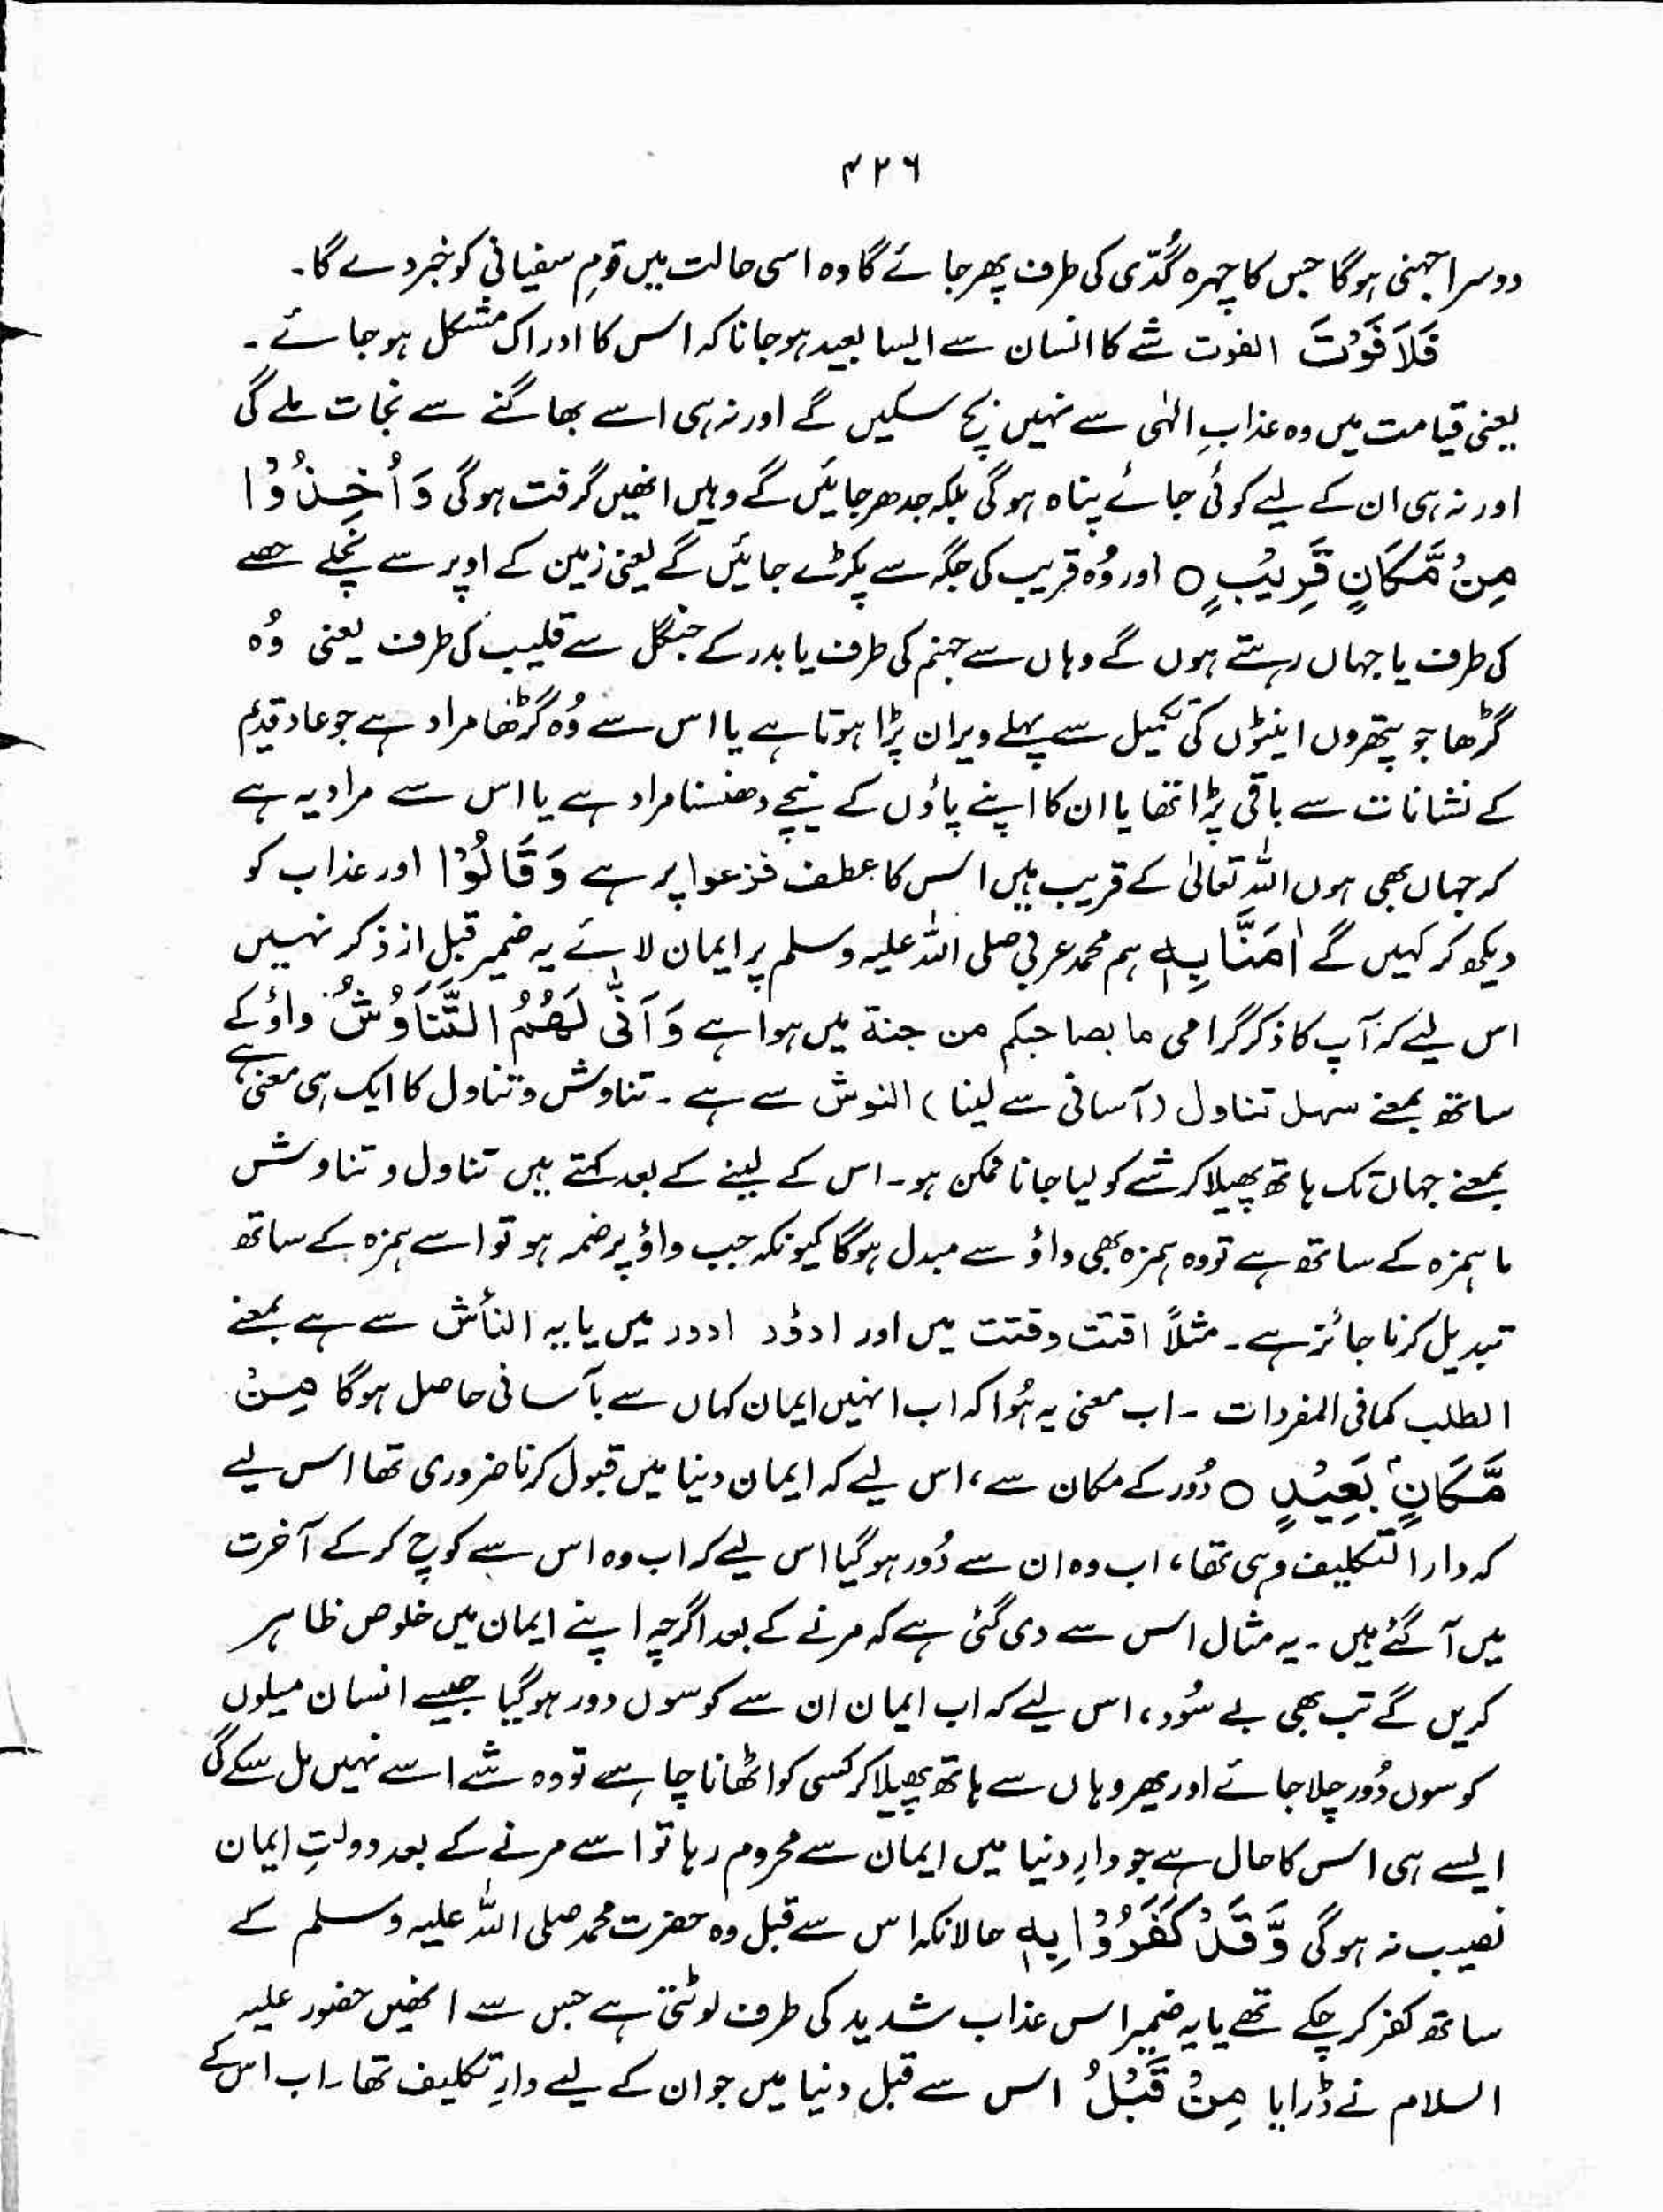 ۴۲۶
دوسرا جہنمی ہوگا جس کا چہرہ گُدّی کی طرف پھر جائے گا وہ اسی حالت میں قومِ سفیانی کو خبر دے گا۔
فَلَا فَوْتَ الفوت شے کا انسان سے ایسا بعید ہو جانا کہ اس کا ادراک مشکل ہو جائے۔
یعنی قیامت میں وہ عذابِ الٰہی سے نہیں بچ سکیں گے اور نہ ہی اسے بھاگنے سے نجات ملے گی
اور نہ ہی ان کے لیے کوئی جائے پناہ ہوگی بلکہ جدھر جائیں گے وہیں انھیں گرفت ہوگی وَاُخِذُوْا
مِنْ مَّكَانٍ قَرِيْبٍ ○ اور وُہ قریب کی جگہ سے پکڑے جائیں گے یعنی زمین کے اوپر سے نچلے حصے
کی طرف یا جہاں رہتے ہوں گے وہاں سے جہنم کی طرف یا بدر کے جنگل سے قلیب کی طرف یعنی وُہ
گڑھا جو پتھروں اینٹوں کی تکمیل سے پہلے ویران پڑا ہوتا ہے یا اس سے وُہ گڑھا مراد ہے جو عاد قدیم
کے نشانات سے باقی پڑا تھا یا ان کا اپنے پاؤں کے نیچے دھنسنا مراد ہے یا اس سے مراد یہ ہے
کہ جہاں بھی ہوں اللہ تعالیٰ کے قریب ہیں اس کا عطف فزعوا پر ہے وَقَالُوْٓا اور عذاب کو
دیکھ کر کہیں گے اٰمَنَّا بِهٖ ہم محمد عربی صلی اللہ علیہ وسلم پر ایمان لائے یہ ضمیر قبل از ذکر نہیں
اس لیے کہ آپ کا ذکر گرامی ما بصاحبکم من جنة میں ہوا ہے وَاَنّٰى لَهُمُ التَّنَاوُشُ واؤ کے
ساتھ بمعنے سہل تناول (آسانی سے لینا) النوش سے ہے۔ تناوش و تناول کا ایک ہی معنی ہے
بمعنے جہاں تک ہاتھ پھیلا کر شے کو لیا جانا ممکن ہو۔ اس کے لینے کے بعد کہتے ہیں تناول و تناوش
ما ہمزہ کے ساتھ ہے تو وہ ہمزہ بھی واؤ سے مبدل ہوگا کیونکہ جب واؤ پر ضمہ ہو تو اسے ہمزہ کے ساتھ
تبدیل کرنا جائز ہے۔ مثلاً اقتت وقتت میں اور ادؤد ادور میں یا یہ النأش سے ہے بمعنے
الطلب کما فی المفردات ۔ اب معنی یہ ہُوا کہ اب انہیں ایمان کہاں سے بآسانی حاصل ہوگا مِنْ
مَّكَانٍۢ بَعِيْدٍ ○ دُور کے مکان سے، اس لیے کہ ایمان دنیا میں قبول کرنا ضروری تھا اس لیے
کہ دار التکلیف وہی تھا، اب وہ ان سے دُور ہوگیا اس لیے کہ اب وہ اس سے کوچ کر کے آخرت
میں آ گئے ہیں ۔ یہ مثال اس سے دی گئی ہے کہ مرنے کے بعد اگرچہ اپنے ایمان میں خلوص ظاہر
کریں گے تب بھی بے سُود، اس لیے کہ اب ایمان ان سے کوسوں دور ہوگیا جیسے انسان میلوں
کوسوں دُور چلا جائے اور پھر وہاں سے ہاتھ پھیلا کر کسی کو اٹھانا چاہے تو وہ شے اسے نہیں مل سکے گی
ایسے ہی اس کا حال ہے جو دارِ دنیا میں ایمان سے محروم رہا تو اسے مرنے کے بعد دولتِ ایمان
نصیب نہ ہوگی وَّقَدْ كَفَرُوْا بِهٖ حالانکہ اس سے قبل وہ حضرت محمد صلی اللہ علیہ وسلم کے
ساتھ کفر کر چکے تھے یا یہ ضمیر اس عذاب شدید کی طرف لوٹتی ہے جس سے انھیں حضور علیہ
السلام نے ڈرایا مِنْ قَبْلُ اس سے قبل دنیا میں جو ان کے لیے دارِ تکلیف تھا۔ اب اس کے